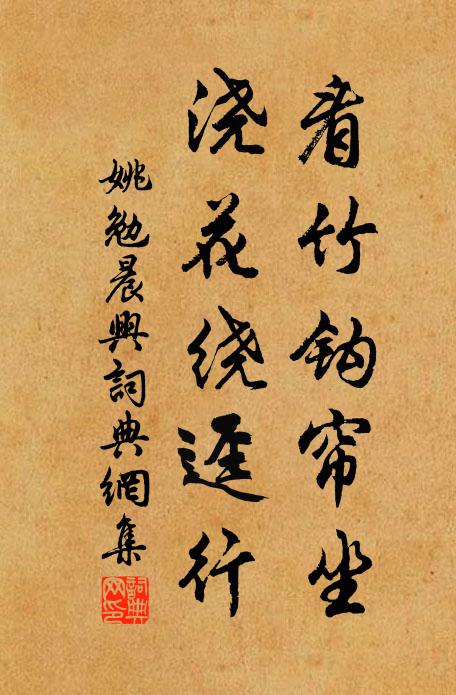 看竹钩帘坐
浇花绕迳行
姚勉晨興詞典網集
詞典网印